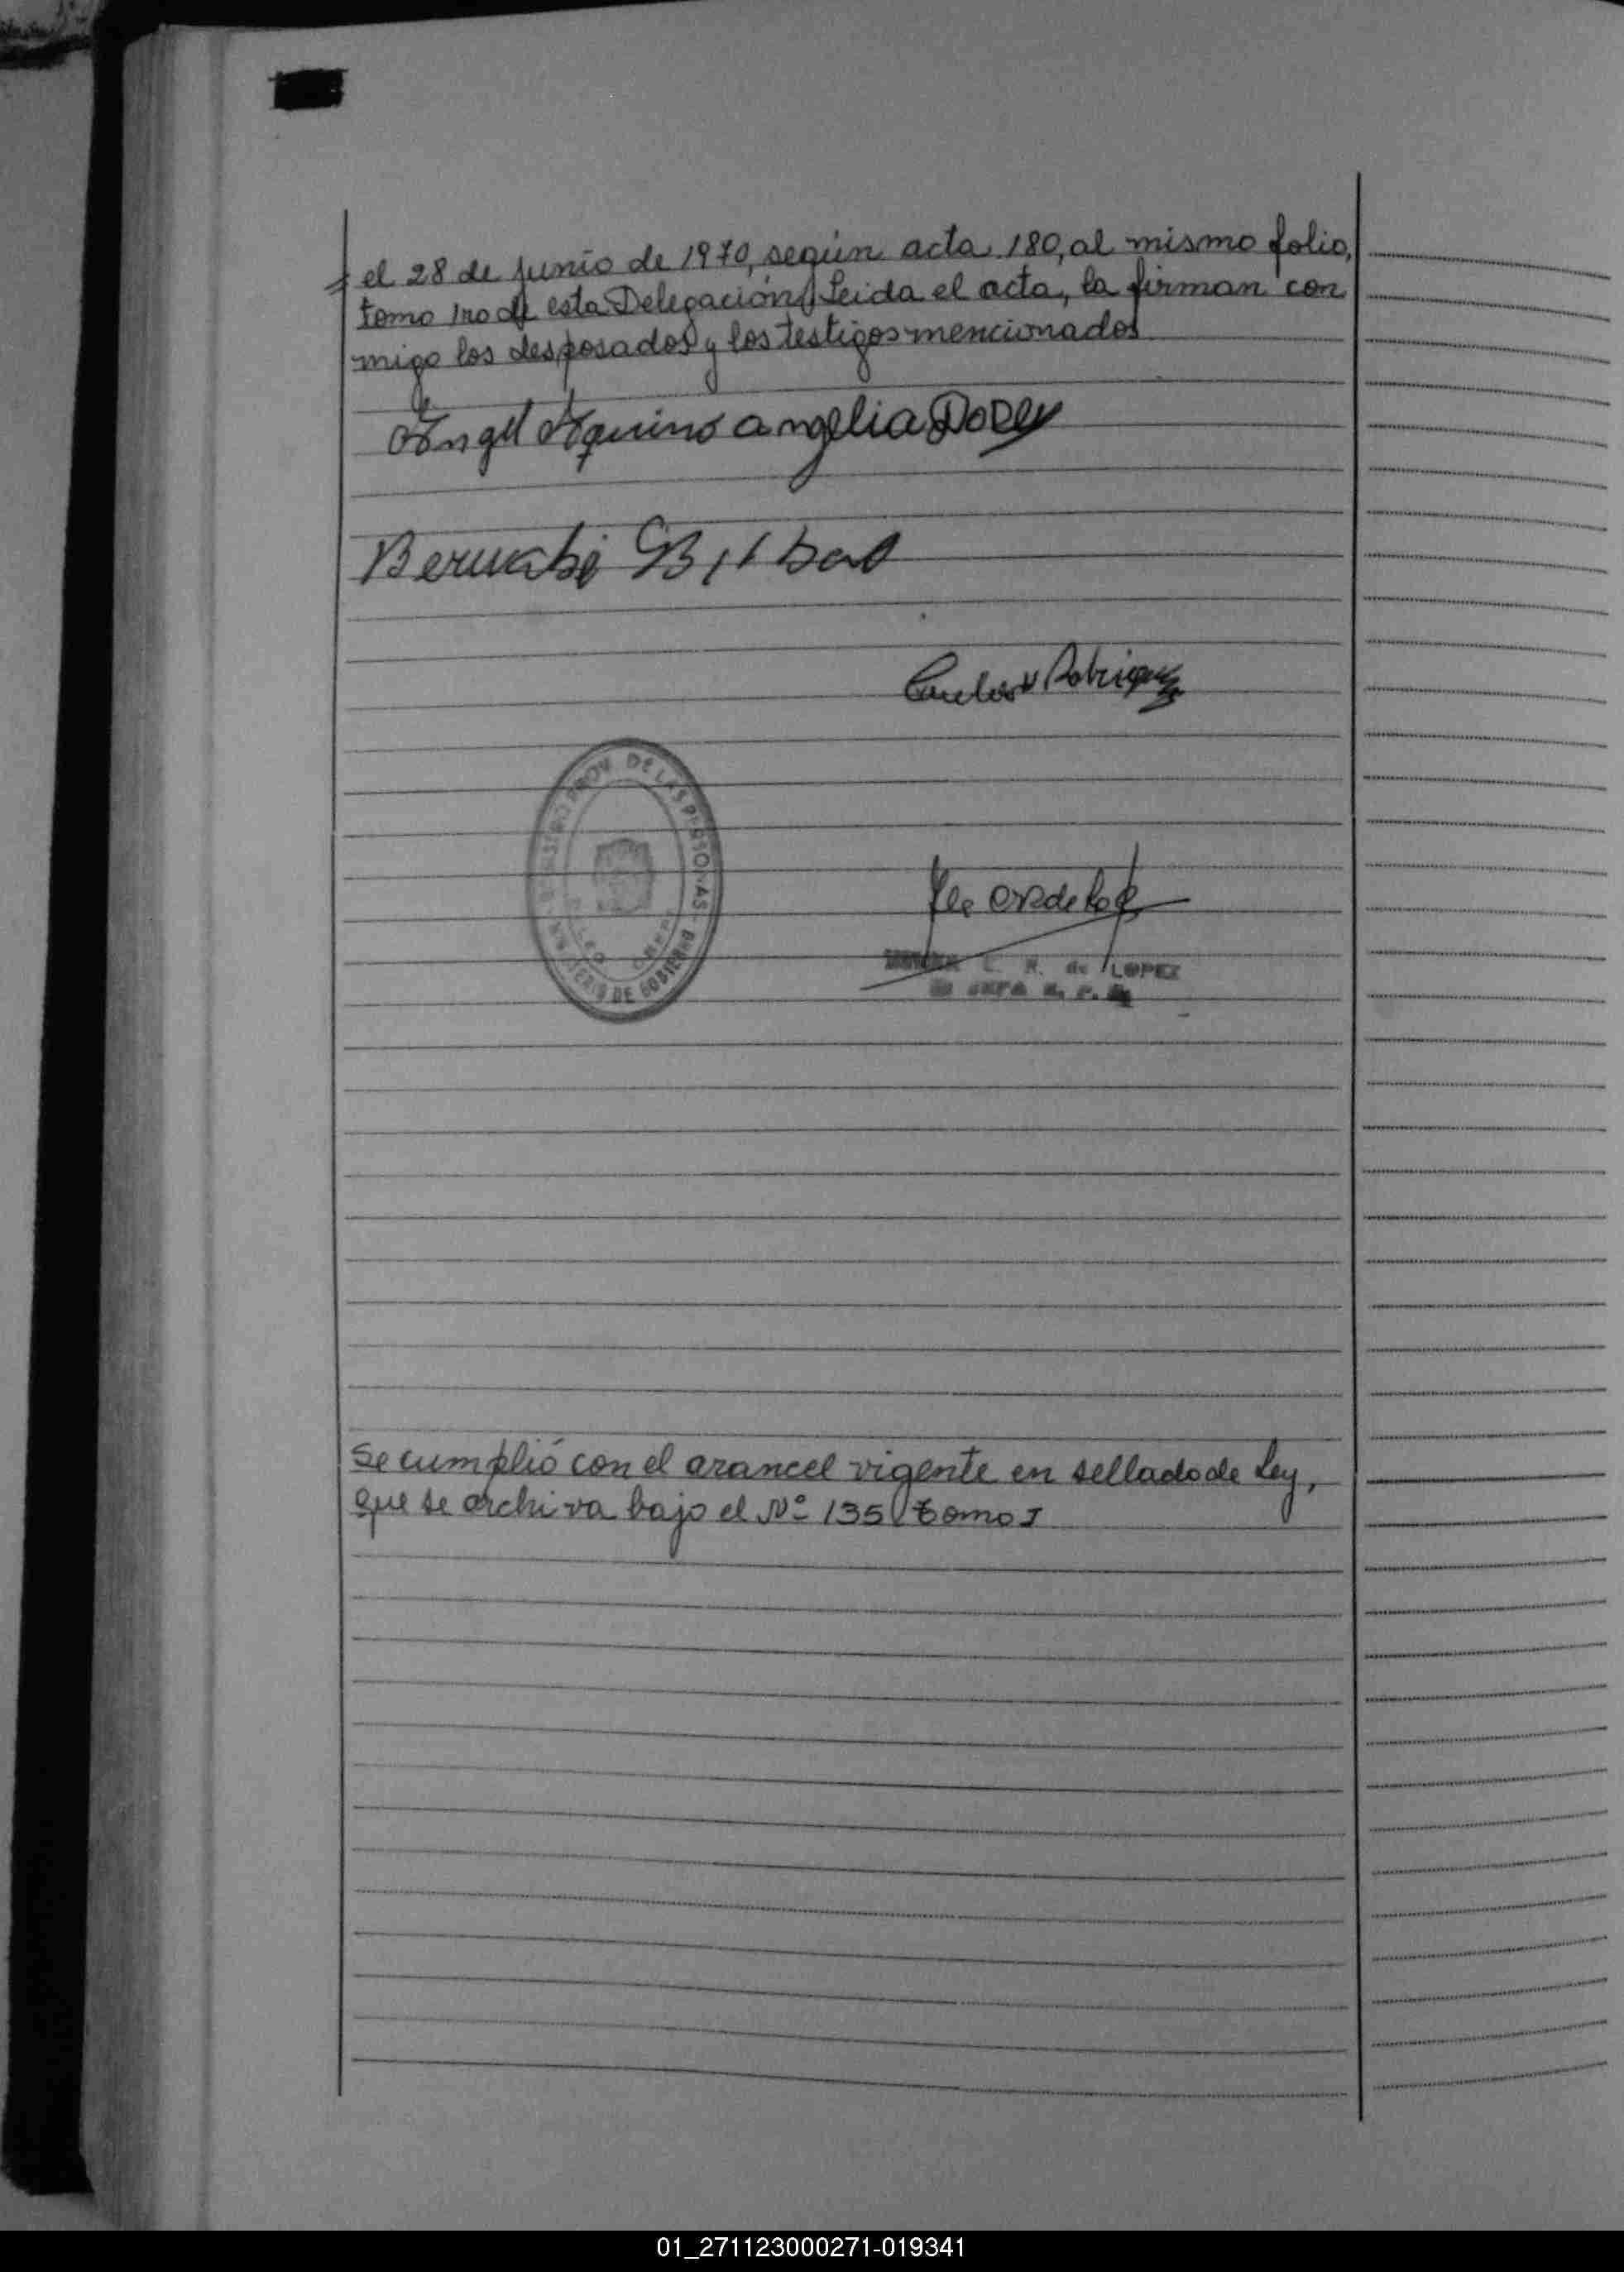 el 28 de junio de 1970, según acta 180, al mismo folio,
tomo 1ro de esta Delegación. Leida el acta, la firman con
migo los desposados y los testigos mencionados
Angel Aquino angelia Doley
Bernabé
Carlos Rodriguez
REGISTRO PROV. DE LAS PERSONAS - MINISTERIO DE GOBIERNO
de LOPEZ
Se cumplió con el arancel vigente en sellado de Ley,
que se archiva bajo el Nº 135 tomo I
01_271123000271-019341